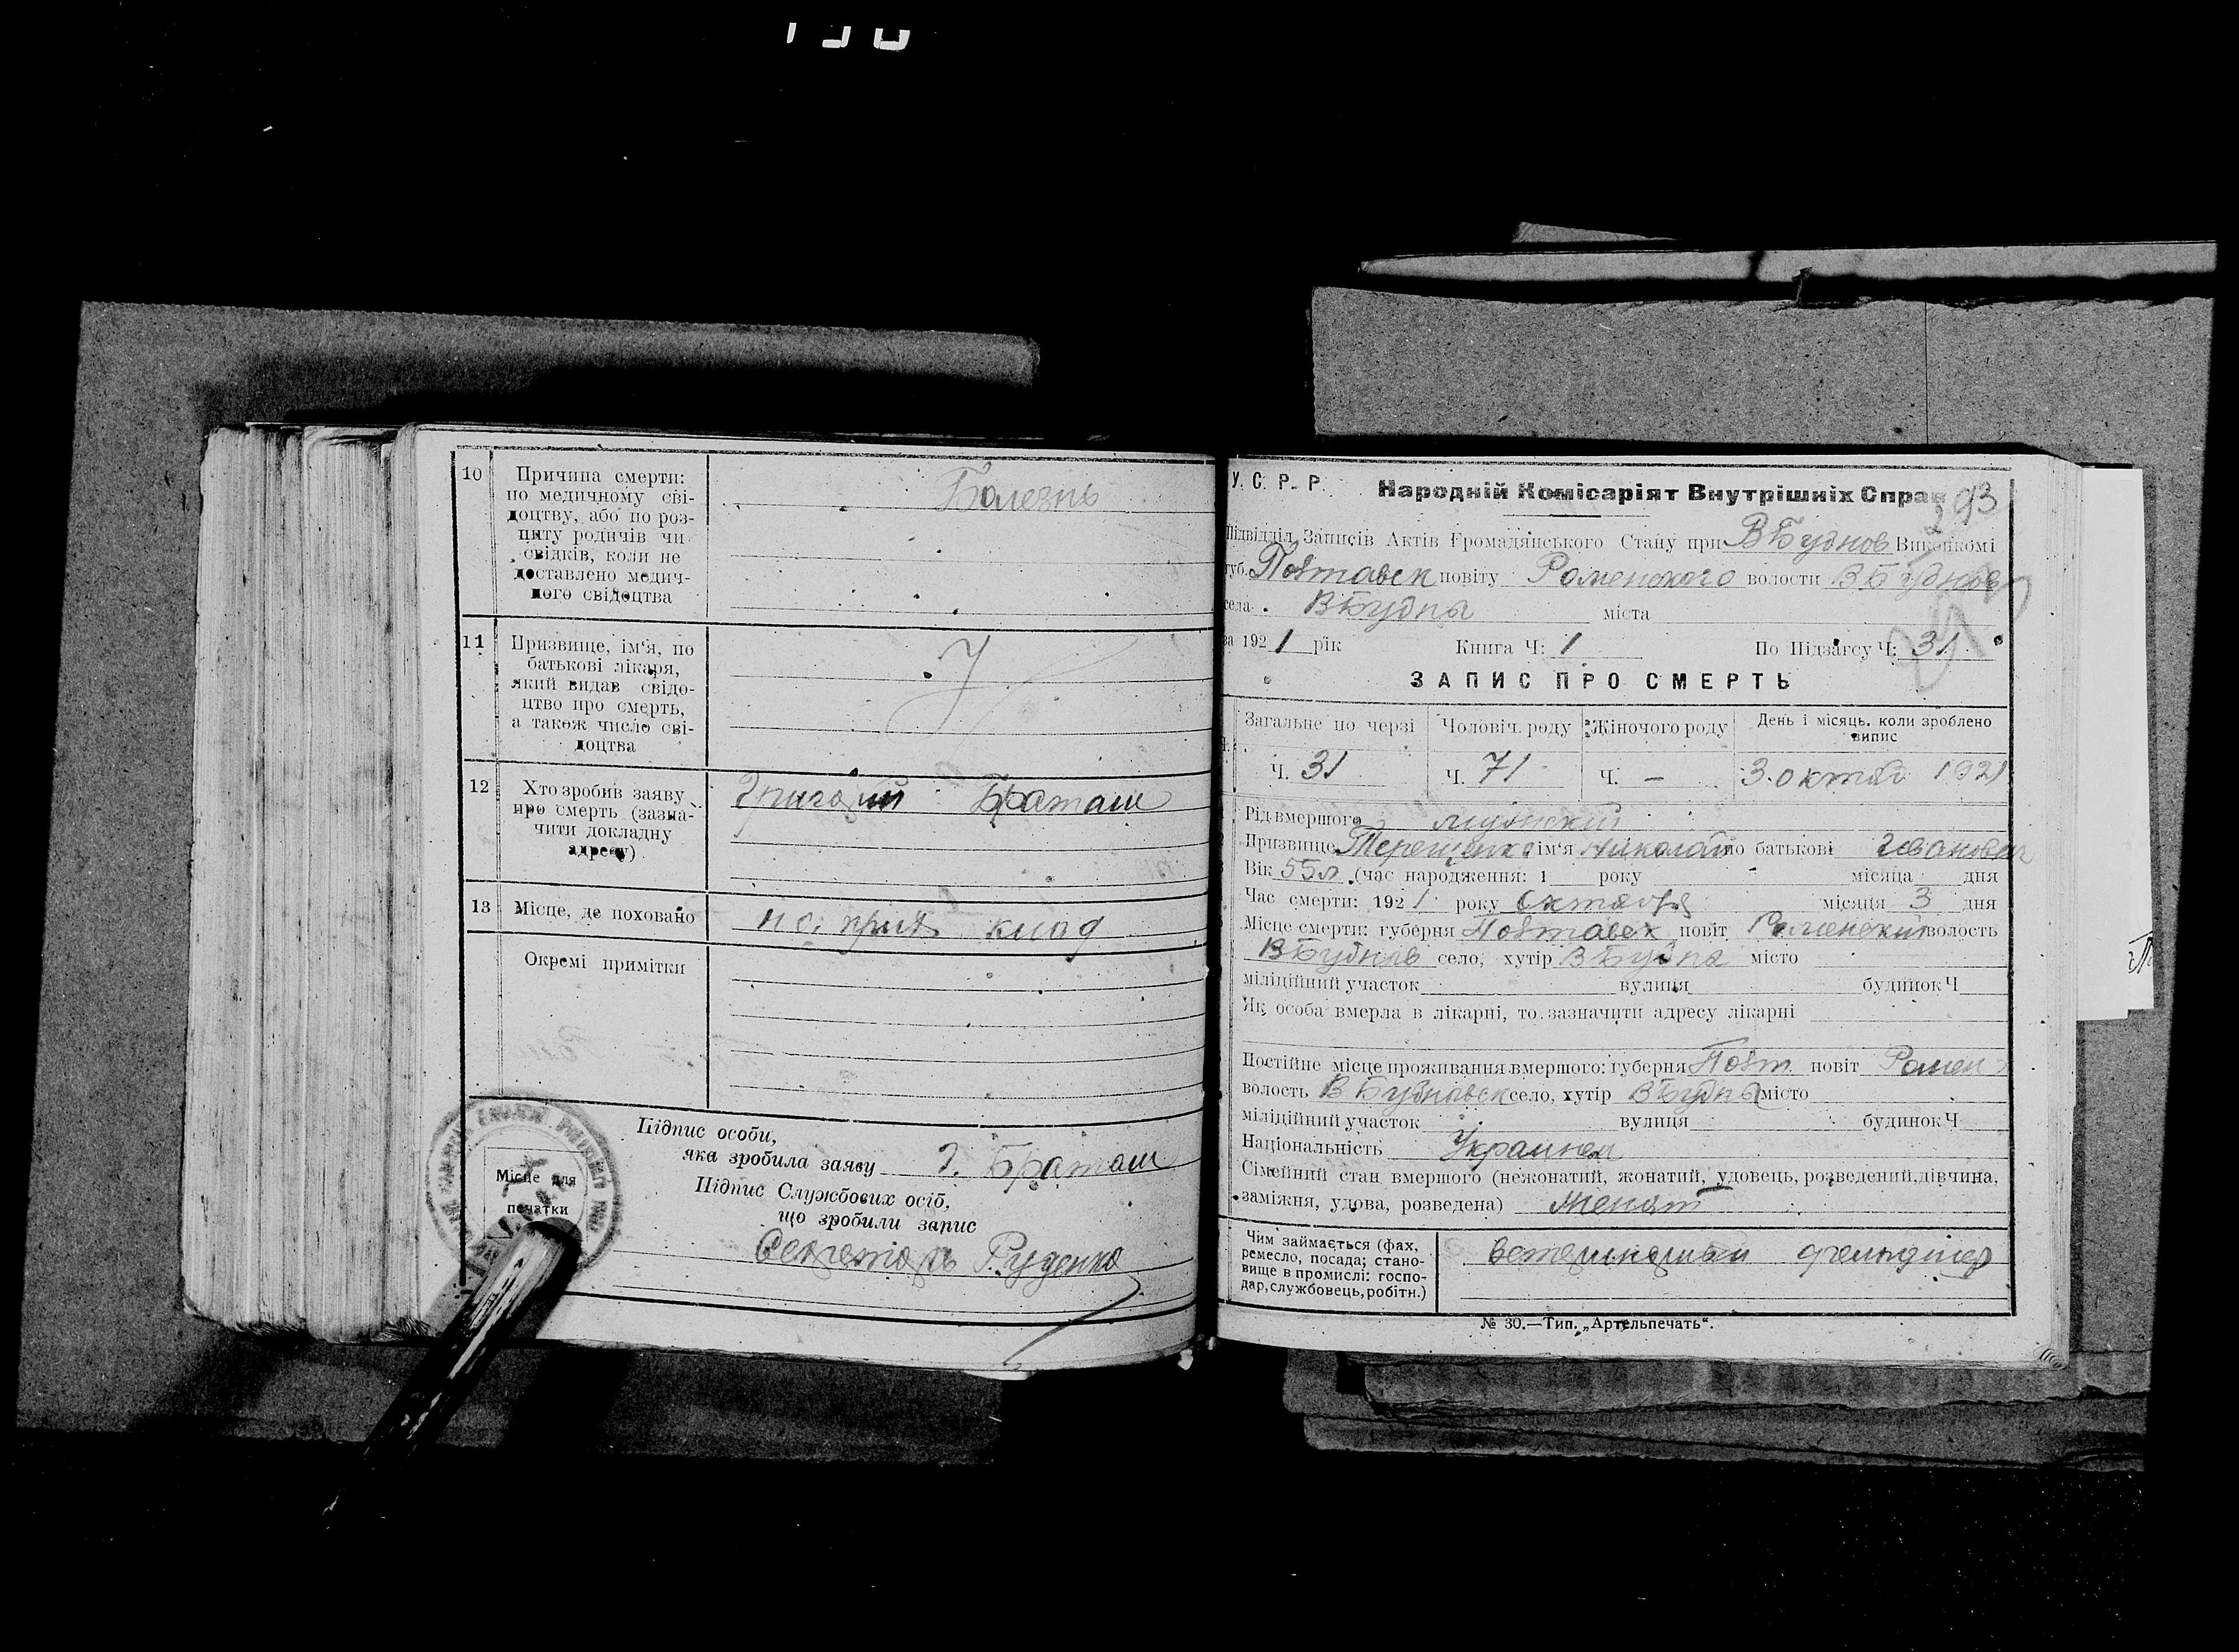 10 Причина смерти:
по медичному сві-
доцтву, або по роз-
питу родичів чи
свідків, коли не
доставлено медич-
ного свідоцтва
Болезнь
11 Призвище, ім'я, по
батькові лікаря,
який видав свідо-
цтво про смерть,
а також число сві-
доцтва
12 Хто зробив заяву
про смерть (зазна-
чити докладну
адресу)
Григорий Браташ
13 Місце, де поховано
на прих клад
Окремі примітки
Підпис особи,
яка зробила заяву Г. Браташ
Підпис Службових осіб,
що зробили запис
Секретарь Руденко
Місце для
печатки
У. С. Р. Р. Народній Комісаріят Внутрішніх Справ
293
Підвідділ Записів Актів Громадянського Стану при ВБубнов Виконкомі
губ. Полтавск повіту Роменского волости ВБубнов
села ВБубны міста
за 1921 рік Книга Ч: 1 По Підзагсу Ч: 31
ЗАПИС ПРО СМЕРТЬ
Загальне по черзі Чоловіч. роду Жіночого роду День і місяць, коли зроблено
випис
Ч. 31 Ч. 71 Ч. — 3 октяб 1921
Рід вмершого мужский
Призвище Терещенко ім'я Николай по батькові Иванович
Вік 55л (час народження: 1 року місяца дня
Час смерти: 1921 року Октября місяця 3 дня
Місце смерти: губерня Полтавск повіт Роменский волость
ВБубнов село, хутір ВБубна місто
міліційний участок вулиця будинок Ч
Як особа вмерла в лікарні, то зазначити адресу лікарні
Постійне місце проживання вмершого: губерня Полт повіт Ромен
волость ВБубновск село, хутір ВБубны місто
міліційний участок вулиця будинок Ч
Національність Украинец
Сімейний стан вмершого (нежонатий, жонатий, удовець, розведений, дівчина,
заміжня, удова, розведена) Женат
Чим займається (фах,
ремесло, посада; стано-
вище в промислі: госпо-
дар, службовець, робітн.)
ветеринарный фельдшер
№ 30.—Тип. „Артельпечать“.